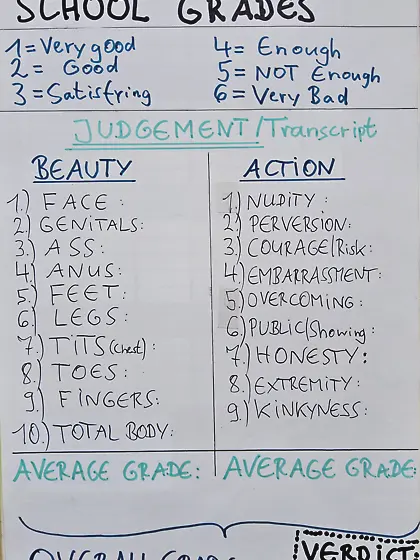 SCHOOL GRADES
1 = Very good
2 = Good
3 = Satisfring
4 = Enough
5 = NOT Enough
6 = Very Bad
JUDGEMENT/Transcript
BEAUTY
1.) FACE :
2.) GENITALS:
3.) ASS:
4.) ANUS:
5.) FEET:
6.) LEGS:
7.) TITS (Chest):
8.) TOES:
9.) FINGERS:
10.) TOTAL BODY:
AVERAGE GRADE:
ACTION
1.) NUDITY :
2.) PERVERSION:
3.) COURAGE/Risk:
4.) EMBARRASSMENT:
5.) OVERCOMING:
6.) PUBLIC/Showing:
7.) HONESTY:
8.) EXTREMITY:
9.) KINKYNESS:
AVERAGE GRADE:
OVERALL GRADE
VERDICT: